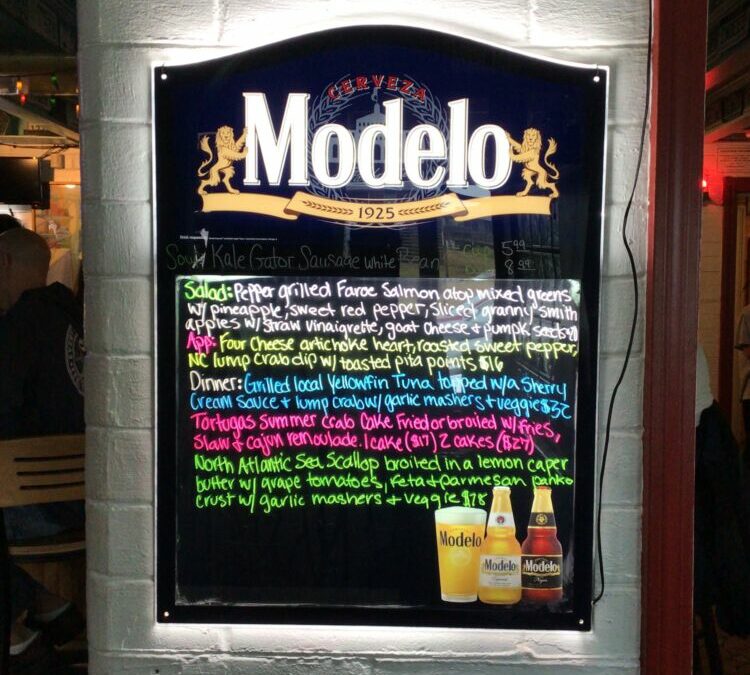 CERVEZA
Modelo
1925
Soup Kale Gator Sausage White Bean Cup 5.99
8.99
Salad: Pepper grilled Faroe Salmon atop mixed greens
w/ pineapple, sweet red pepper, sliced granny smith
apples w/ straw vinaigrette, goat cheese + pumpk seeds
App: Four Cheese artichoke heart, roasted sweet pepper,
NC lump crab dip w/ toasted pita points $16
Dinner: Grilled local Yellowfin Tuna topped w/a Sherry
Cream Sauce + lump crab w/ garlic mashers + veggie $32
Tortugas Summer Crab Cake Fried or broiled w/ fries,
Slaw + cajun remoulade. 1 cake ($17) 2 cakes ($27)
North Atlantic Sea Scallop broiled in a lemon caper
butter w/ grape tomatoes, feta + parmesan panko
crust w/ garlic mashers + veggie $28
Modelo
Modelo
Modelo